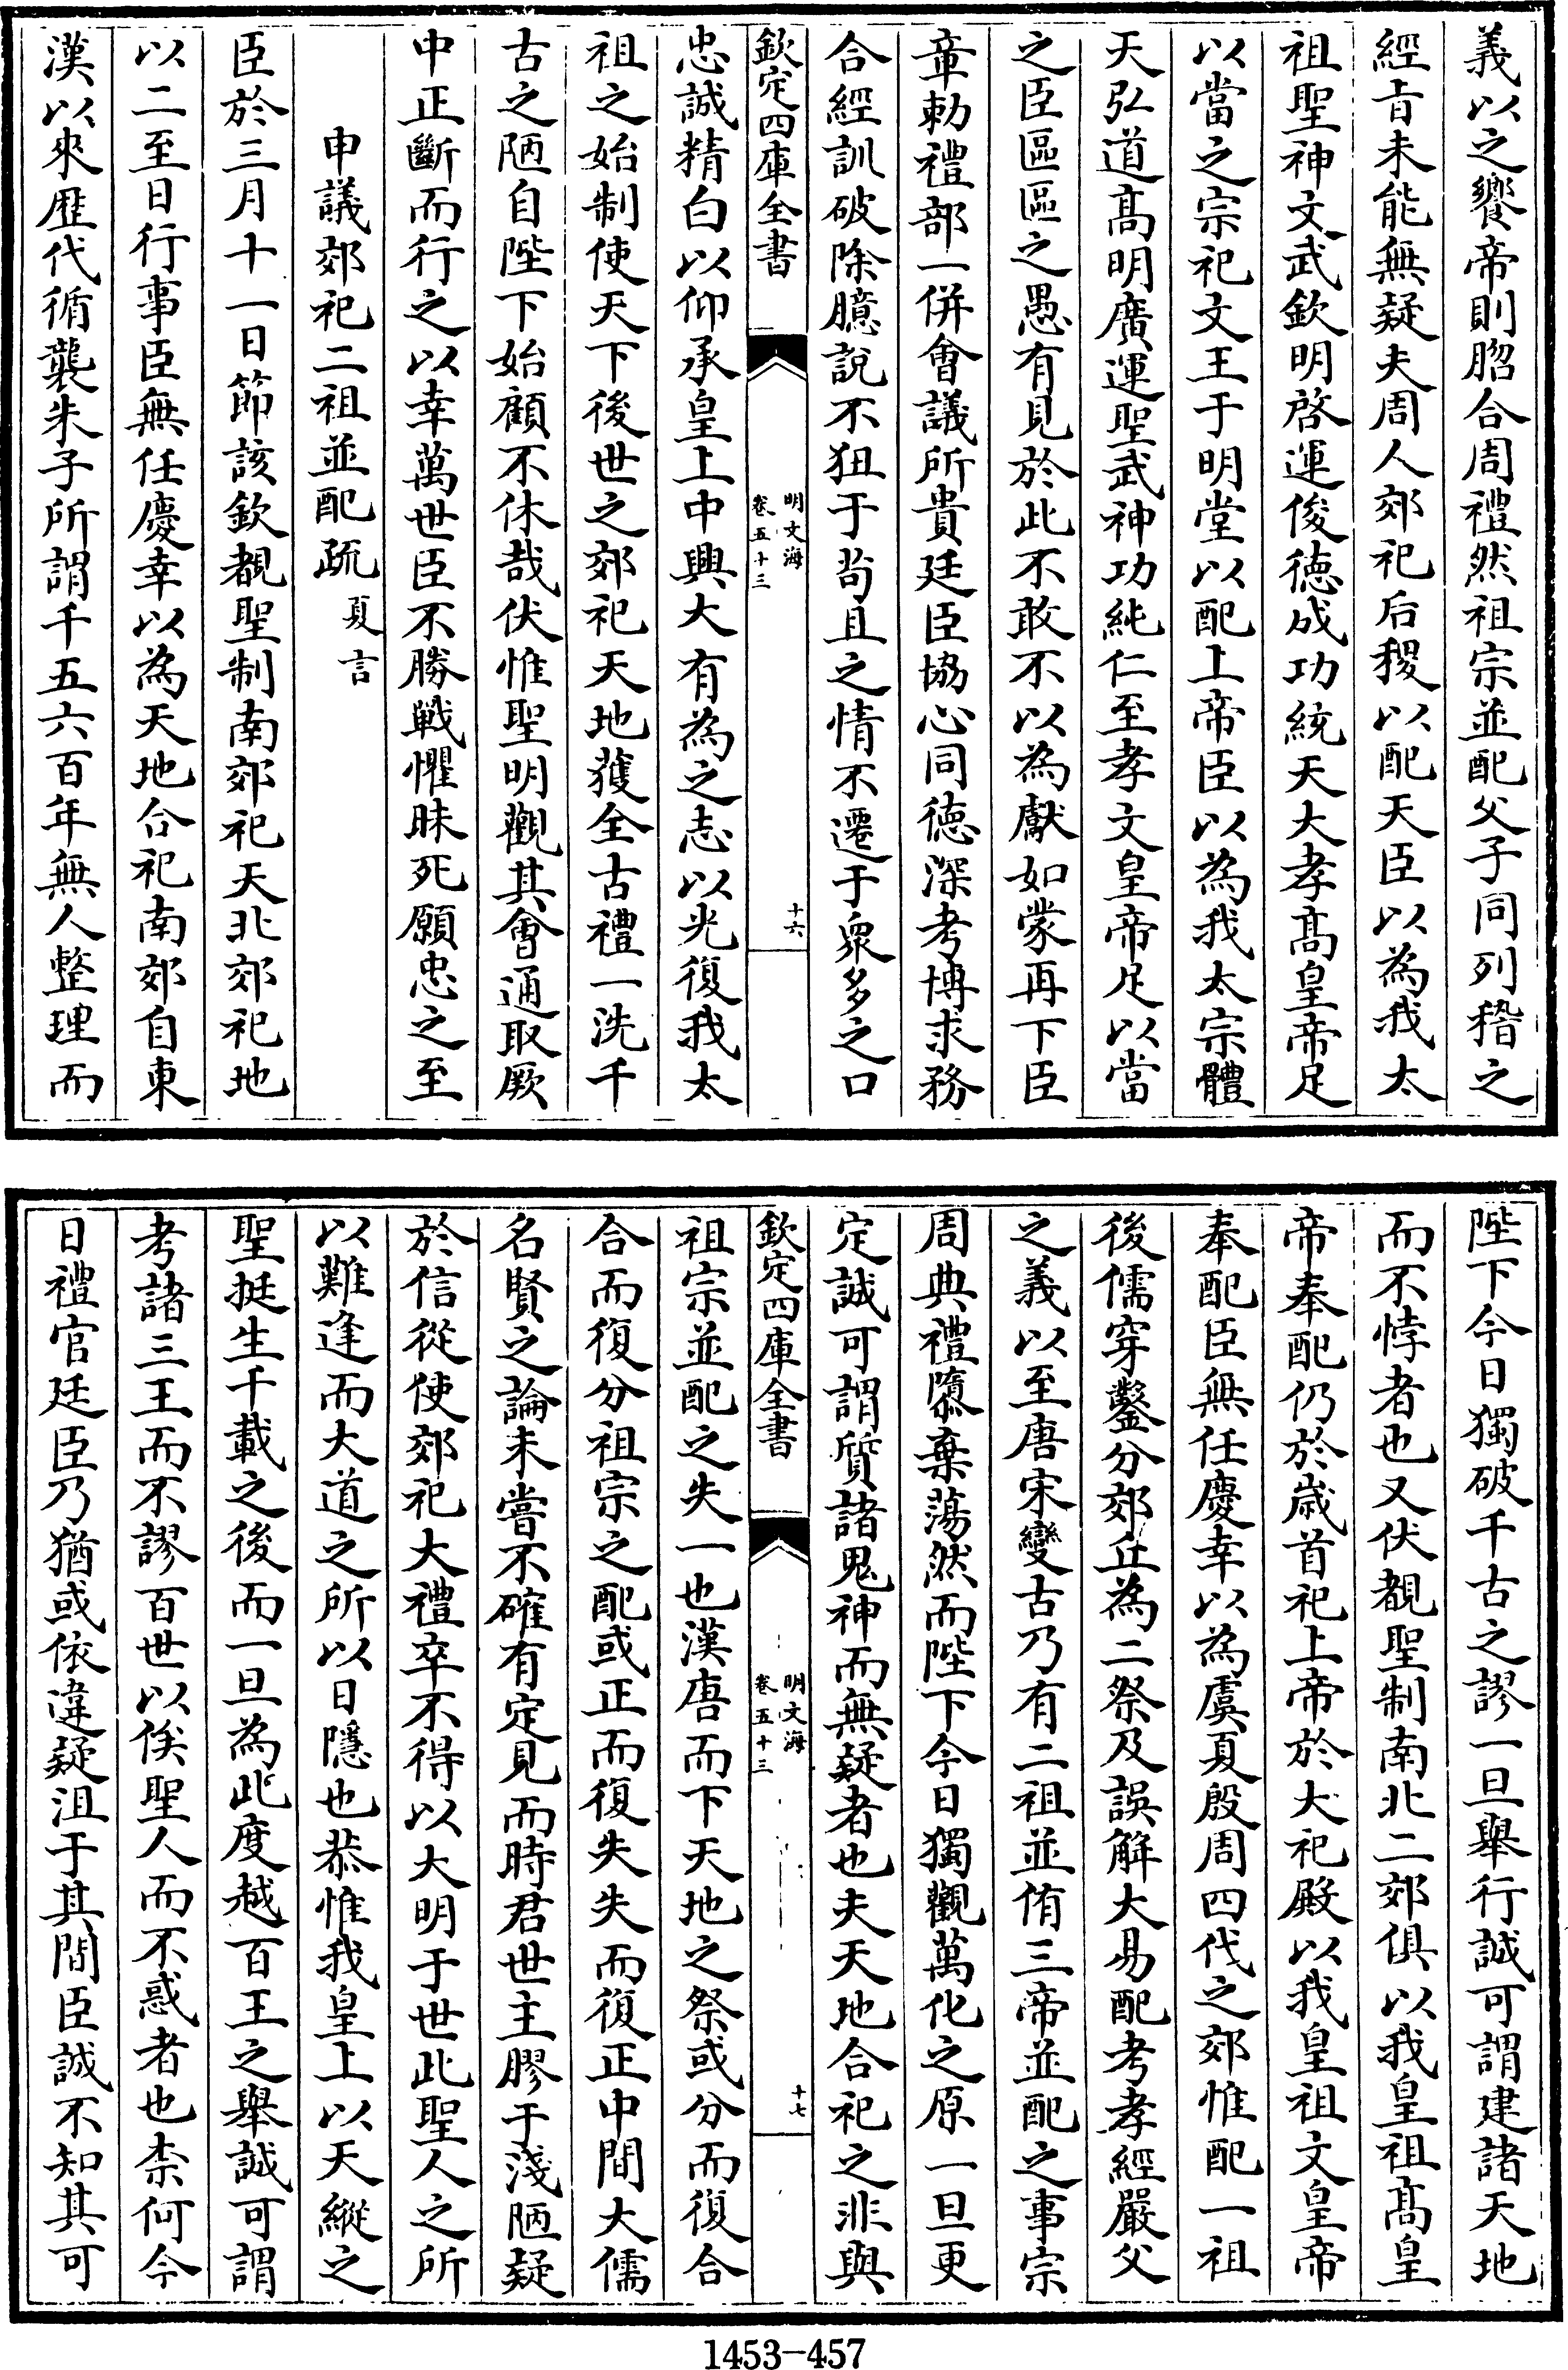 義以之饗帝則脗合周禮然祖宗並配父子同列稽之
經旨未能無疑夫周人郊祀后稷以配天臣以為我太
祖聖神文武欽明啓運俊德成功統天大孝髙皇帝足
以當之宗祀文王于明堂以配上帝臣以為我太宗體
天弘道髙明廣運聖武神功純仁至孝文皇帝足以當
之臣區區之愚有見於此不敢不以為獻如蒙再下臣
章勅禮部一併會議所貴廷臣協心同德深考博求務
合經訓破除臆說不狃于茍且之情不遷于衆多之口
欽定四庫全書
明文海
卷五十三
十六
忠誠精白以仰承皇上中興大有為之志以光復我太
祖之始制使天下後世之郊祀天地獲全古禮一洗千
古之陋自陛下始顧不休哉伏惟聖明觀其會通取厥
中正斷而行之以幸萬世臣不勝戰懼昧死願忠之至
申議郊祀二祖並配疏 夏言
臣於三月十一日節該欽覩聖制南郊祀天北郊祀地
以二至日行事臣無任慶幸以為天地合祀南郊自東
漢以來歷代循襲朱子所謂千五六百年無人整理而
陛下今日獨破千古之謬一旦舉行誠可謂建諸天地
而不悖者也又伏覩聖制南北二郊俱以我皇祖髙皇
帝奉配仍於歲首祀上帝於大祀殿以我皇祖文皇帝
奉配臣無任慶幸以為虞夏殷周四代之郊惟配一祖
後儒穿鑿分郊丘為二祭及誤解大易配考孝經嚴父
之義以至唐宋變古乃有二祖並侑三帝並配之事宗
周典禮隳棄蕩然而陛下今日獨觀萬化之原一旦更
定誠可謂質諸鬼神而無疑者也夫天地合祀之非與
欽定四庫全書
明文海
卷五十三
十七
祖宗並配之失一也漢唐而下天地之祭或分而復合
合而復分祖宗之配或正而復失失而復正中間大儒
名賢之論未嘗不確有定見而時君世主膠于淺陋疑
於信從使郊祀大禮卒不得以大明于世此聖人之所
以難逢而大道之所以日隱也恭惟我皇上以天縱之
聖挺生千載之後而一旦為此度越百王之舉誠可謂
考諸三王而不謬百世以俟聖人而不惑者也柰何今
日禮官廷臣乃猶或依違疑沮于其間臣誠不知其可
1453-457